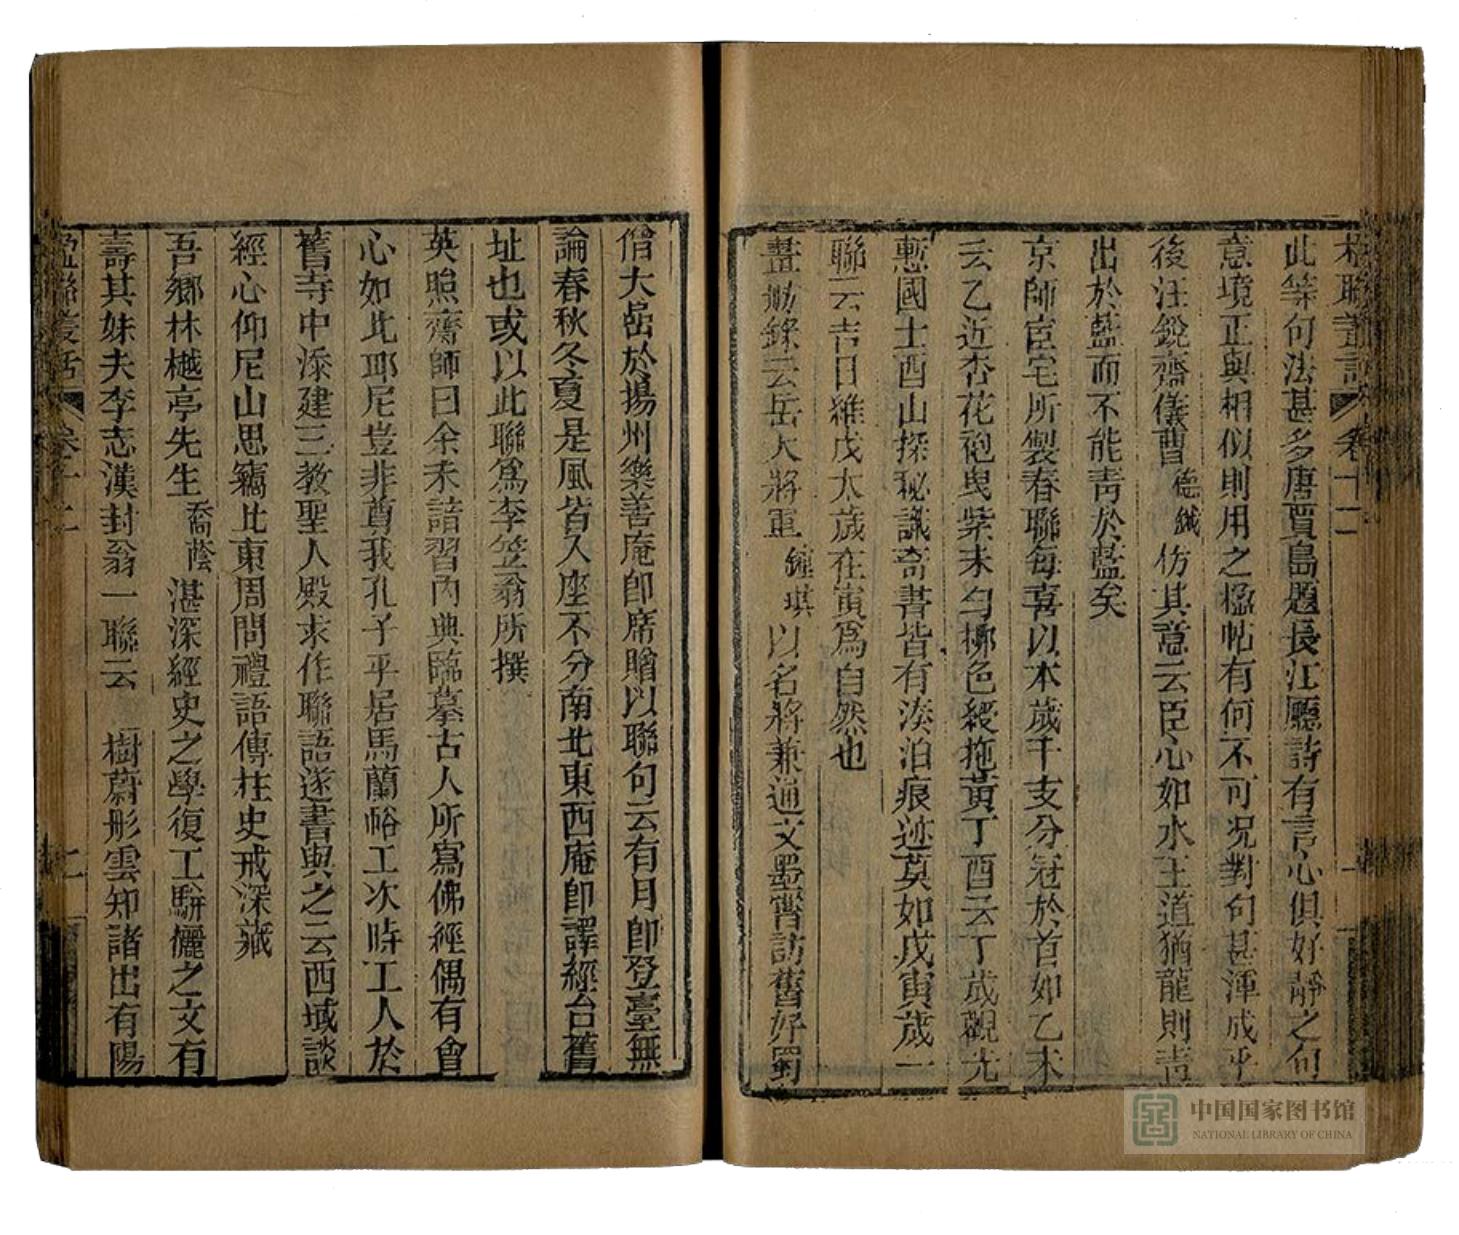 楹聯叢話 卷十二 一
此等句法甚多唐賈島題長江廳詩有言心俱好靜之句
意境正與相似則用之楹帖有何不可況對句甚渾成乎
後汪銳齋儀曹德鉞仿其意云臣心如水王道猶龍則青
出於藍而不能青於藍矣
京師宦宅所製春聯每喜以本歲干支分冠於首如乙未
云乙近杏花袍曳紫未勻柳色綬拖黃丁酉云丁歲觀光
慙國士酉山探秘識奇書皆有湊泊痕迹莫如戊寅歲一
聯云吉日維戊太歲在寅為自然也
畫舫錄云岳大將軍鍾琪以名將兼通文墨嘗訪舊好蜀
僧大嵒於揚州樂善庵即席贈以聯句云有月即登臺無
論春秋冬夏是風皆入座不分南北東西庵即譯經台舊
址也或以此聯為李笠翁所撰
英照齋師曰余未諳習內典臨摹古人所寫佛經偶有會
心如此耶尼豈非尊我孔子乎居馬蘭峪工次時工人於
舊寺中添建三教聖人殿求作聯語遂書與之云西域談
經心仰尼山思竊比東周問禮語傳柱史戒深藏
吾鄉林樾亭先生喬蔭湛深經史之學復工駢儷之文有
壽其妹夫李志漢封翁一聯云樹蔚彤雲知諸出有陽
楹聯叢話 卷十二 二
中国国家图书馆
NATIONAL LIBRARY OF CHINA